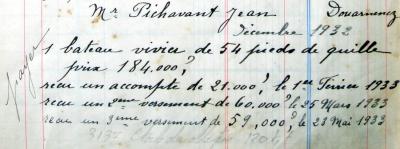 Mr Pichavant Jean Douarnenez
Décembre 1932
1 bateau vivier de 54 pieds de quille
prix 184.000f
payer
recu un accompte de 21.000f, le 1er Février 1933
recu un 2eme versement de 60.000f le 25 Mars 1933
recu un 3eme versement de 59,000f, le 23 Mai 1933